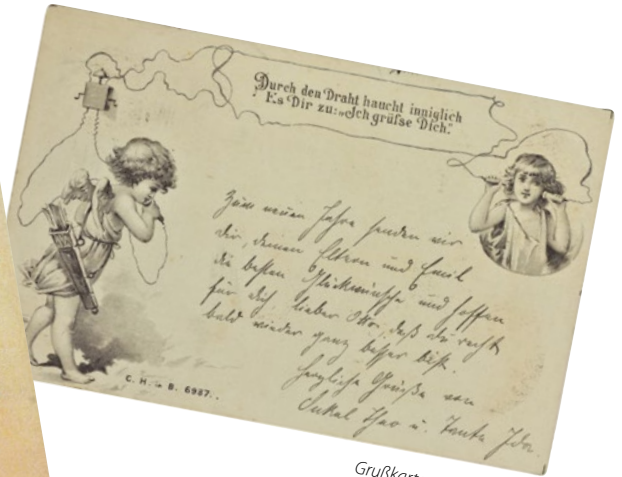 Durch den Draht haucht inniglich
Es Dir zu: „Ich grüsse Dich."
Zum neuen Jahre senden wir
dir, deinen Eltern und Emil
die besten Glückwünsche und hoffen
für dich lieber Otto, daß du recht
bald wieder ganz besser bist.
Herzliche Grüße von
Onkel Theo u. Tante Ida.
C. H. B. 6987.
Grußkart